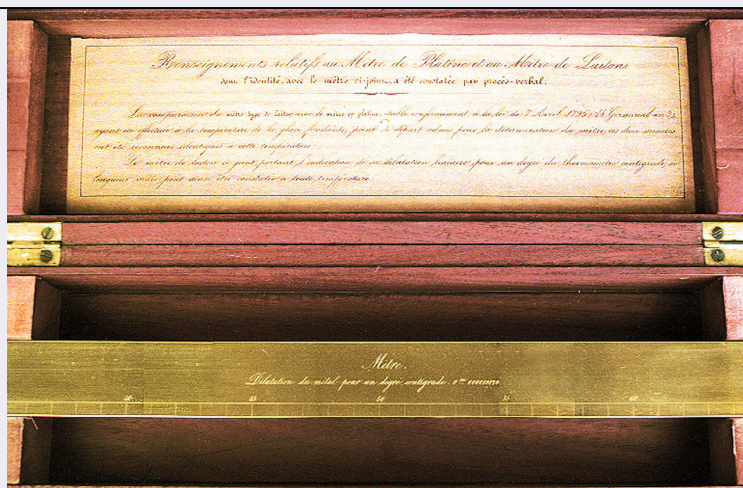 Renseignements relatifs au Mètre de Platine et au Mètre de Laiton
dont l'identité, avec le mètre ci-joint, a été constatée par procès-verbal.
La comparaison du mètre type de laiton avec le mètre en platine, établie conformément à la loi du 7 Avril 1795 (18 Germinal an 3)
ayant été effectuée à la température de la glace fondante, point de départ admis pour la détermination du mètre, ces deux mesures
ont été reconnues identiques à cette température.
Le mètre de laiton ci-joint portant l'indication de sa dilatation linéaire pour un degré du thermomètre centigrade, sa
longueur vraie peut ainsi être constatée à toute température.
Mètre.
Dilatation du métal pour un degré centigrade. 0
45 50 55 60